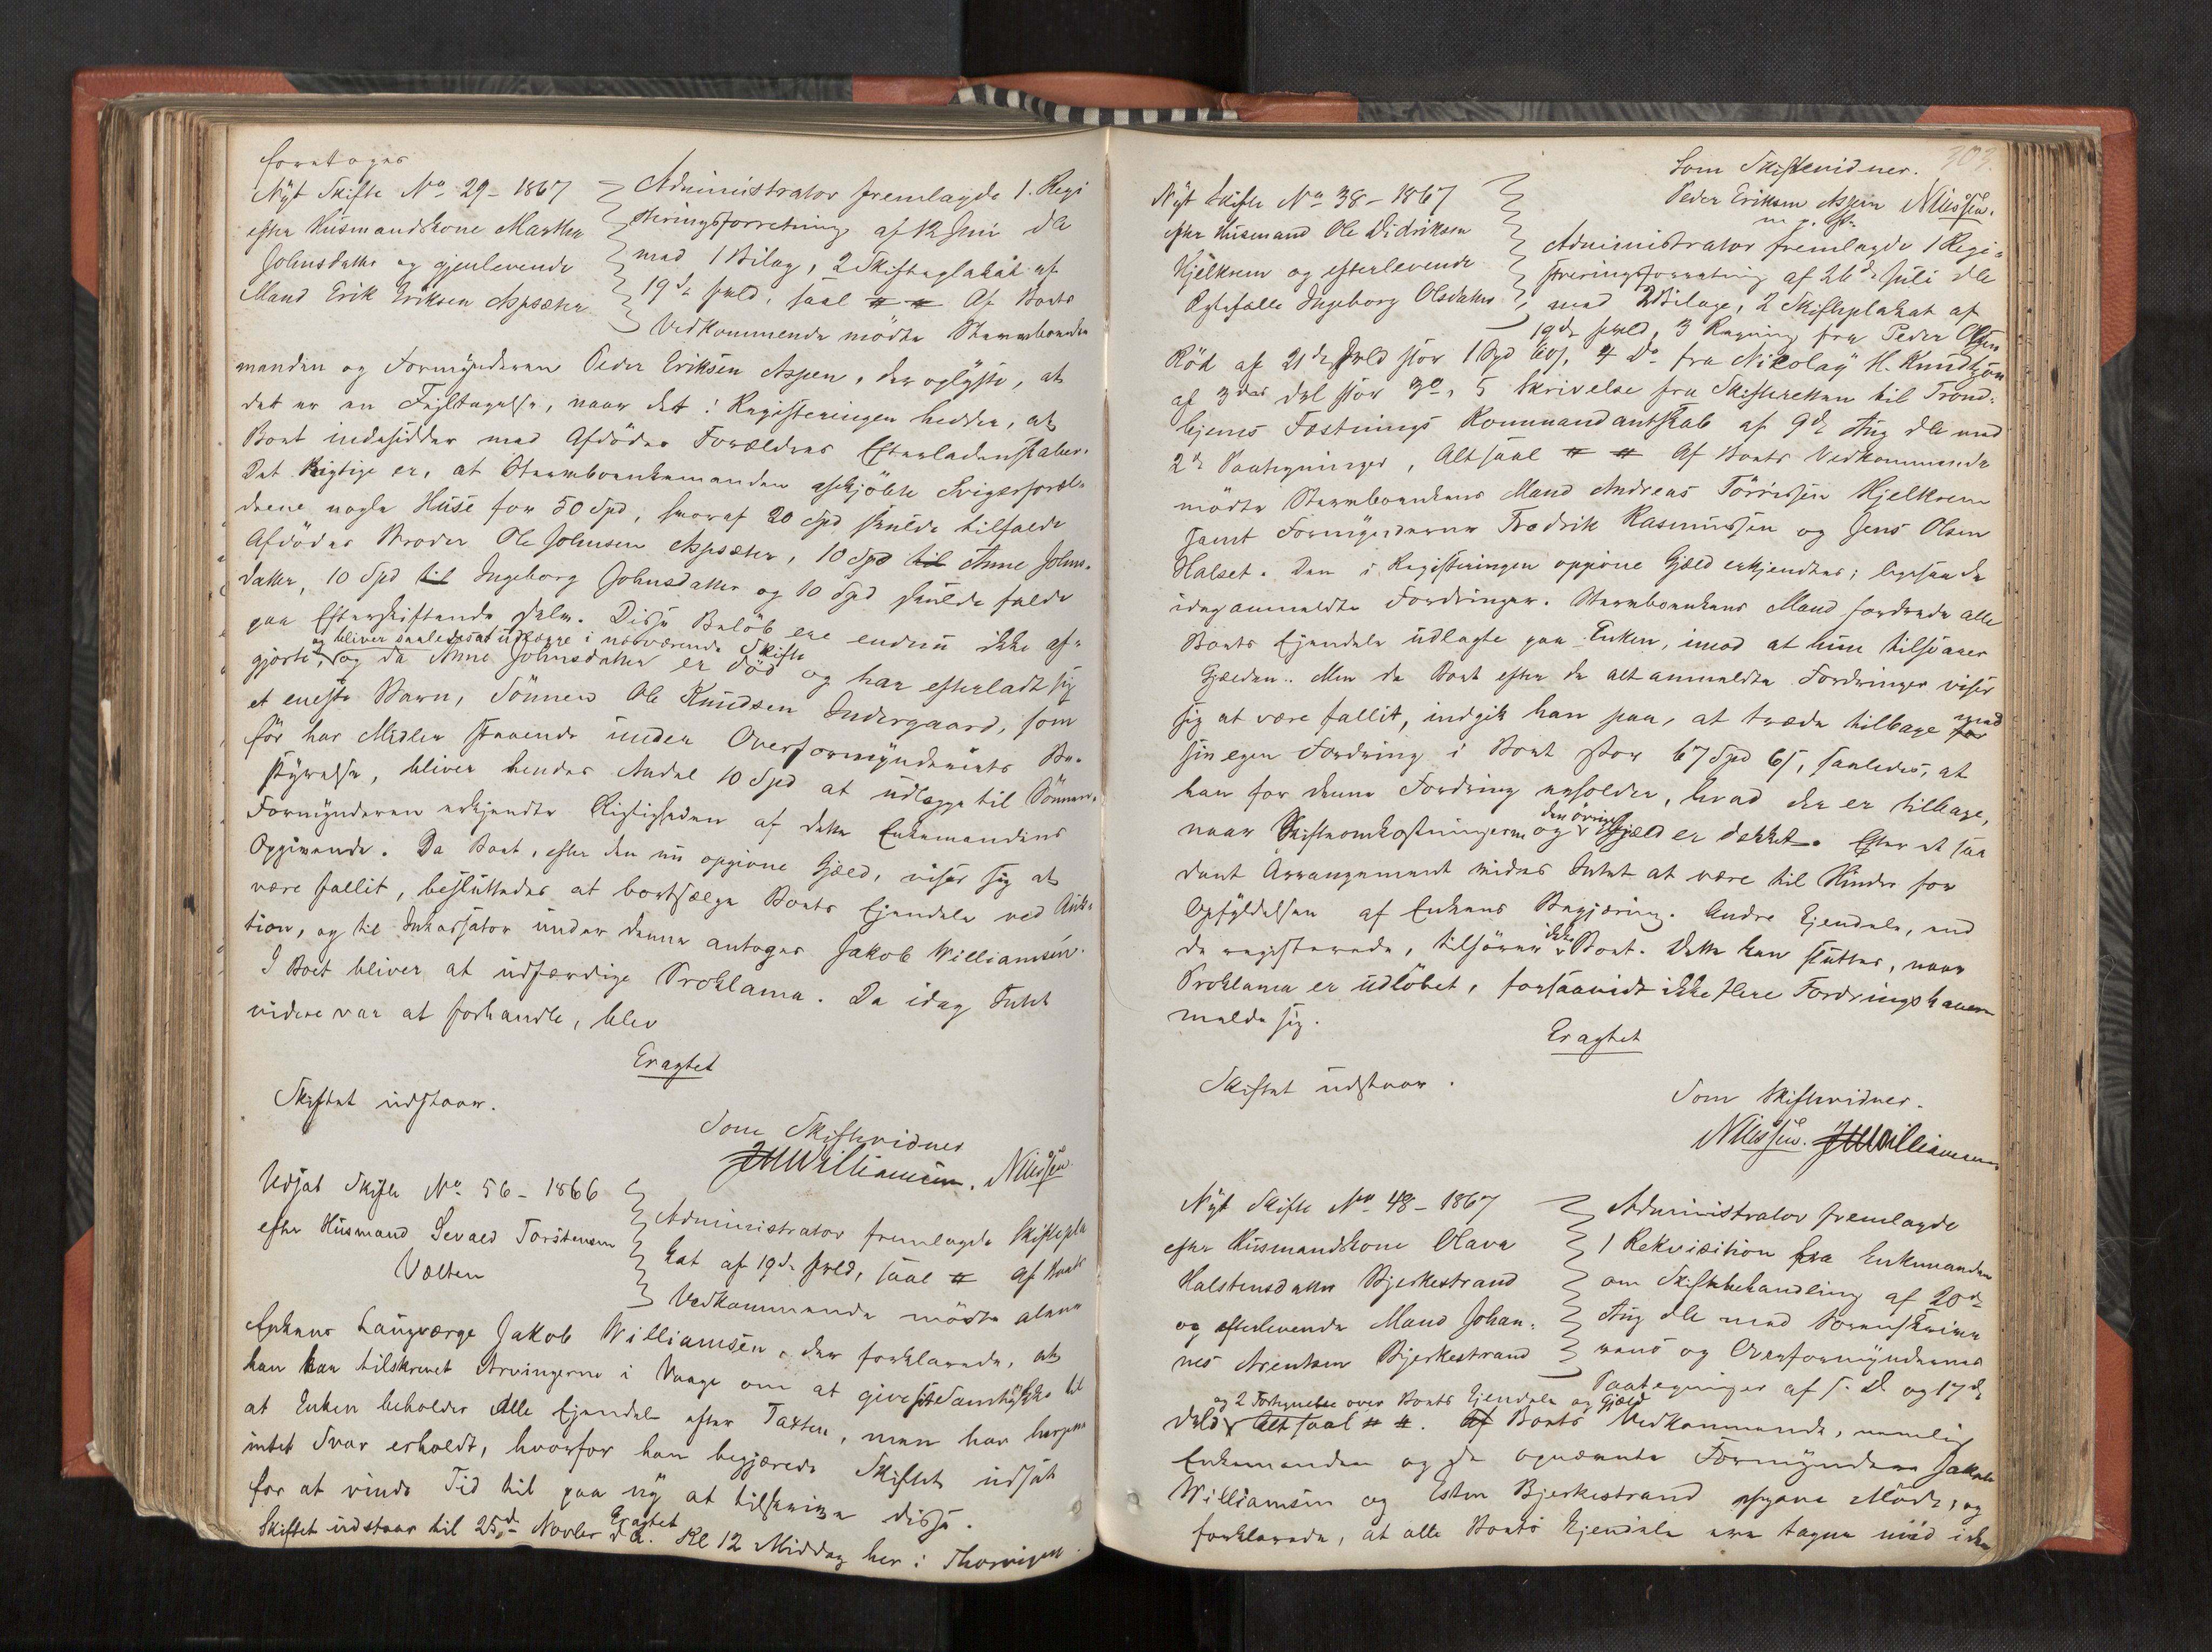 foretoges
Nyt Skifte No 29 - 1867
efter Husmandskone Marthe
Johnsdatter og gjenlevende
Mand Erik Eriksen Aspsæter
Administrator fremlagde 1. Regi
streringsforretning af 12 Juni d A
med 1 Bilag, 2 Skifteplakat af
19de f. M., saal. Af Boets
Vedkommende mødte Stervboenke
manden og Formynderen Peder Eriksen Aspen, der oplyste, at
det er en Fejltagelse, naar det i Registeringen hedder, at
Boet indesidder med Afdødes Forældres Efterladenskaber.
Det Rigtige er, at Stervboenkemanden afkjøbte Svigerforæl-
drene nogle Huse for 50 Spd, hvoraf 20 Spd skulde tilfalde
Afdødes Broder Ole Johnsen Aspsæter, 10 Spd til Anne Johns-
datter, 10 Spd til Ingeborg Johnsdatter og 10 Spd skulde falde
paa Efterskiftende selv. Disse Beløb ere endnu ikke af-
og bliver saaledes at udlægge i nærværende Skifte
gjorte, og da Anne Johnsdatter er død og har efterladt sig
et eneste Barn, Sønnen Ole Knudsen Indergaard, som
før har Midler staaende under Overformynderiets Be-
styrelse, bliver hendes Andel 10 Spd at udlægge til Sønnen.
Formynderen erkjendte Rigtigheden af dette Enkemandens
Opgivende. Da Boet, efter den nu opgivne Gjæld, viser sig at
være fallit, besluttedes at bortsælge Boets Ejendele ved Auk-
tion, og til Inkassator under denne antoges Jakob Williamsen.
I Boet bliver at udfærdige Proklama. Da idag Intet
videre var at forhandle, blev
Eragtet
Skiftet udstaar.
Som Skiftevidner
JWWilliamsen. Nilssen
Udsat Skifte No 56 - 1866
efter Husmand Sevald Torstensen
Volten
Administrator fremlagde Skiftepla
kat af 19de f. M., saal. Af Boets
Vedkommende mødte alene
Enkens Laugværge Jakob Williamsen, der forklarede, at
han har tilskrevet Arvingerne i Vaage om at give sit Samtykke til
at Enken beholder Alle Ejendele efter Taxten, men har herpaa
intet Svar erholdt, hvorfor han begjærede Skiftet udsat
for at vinde Tid til paa ny at tilskrive disse.
Eragtet
Skiftet udstaar til 25de Novbr d A. Kl 12 Middag her i Thorvigen.
303.
Som Skiftevidner.
Peder Eriksen Aspen Nilssen.
m. p. P.
Nyt Skifte No 38 - 1867
efter Husmand Ole Didriksen
Hjelkrem og efterlevende
Ægtefælle Ingeborg Olsdatter
Administrator fremlagde 1 Regi-
streringsforretning af 26de Juli d A
med 2 Bilage, 2 Skifteplakat af
19de f. M., 3 Regning fra Peder Olsen
Röd af 21de f. M. stor 1 Spd 60 s, 4 Do fra Nikolay H. Knudtzon
af 3die ds. stor 30, 5 Skrivelse fra Skifteretten til Trond-
hjems Fæstnings Kommandantskab af 9de Aug d A med
2de Paategninger, Alt saal. Af Boets Vedkommende
mødte Stervboenkens Mand Andreas Törrissen Hjelkrem
samt Formynderne Fredrik Rasmussen og Jens Olsen
Halset. Den i Registeringen opgivne Gjæld erkjendtes; ligesaa de
idag anmeldte Fordringer. Stervboenkens Mand fordrede alle
Boets Ejendele udlagte paa Enken, imod at hun tilsvarer
Gjælden. Men da Boet efter de alt anmeldte Fordringer viser
sig at være fallit, indgik han paa, at træde tilbage for med
sin egen Fordring i Boet stor 67 Spd 6 s, saaledes, at
han for denne Fordring erholder, hvad der er tilbage,
naar Skifteomkostningerne og den øvrige Gjæld er dækket. Efter et saa
dant Arrangement vides Intet at være til Hinder for
Opfyldelsen af Enkens Begjæring. Andre Ejendele, end
de registrerede, tilhører ikke Boet. Dette kan sluttes, naar
Proklama er udløbet, forsaavidt ikke flere Fordringshavere
melde sig.
Eragtet
Skiftet udstaar.
Som Skiftevidner.
Nilssen. JWWilliamsen
Nyt Skifte No 48 - 1867
efter Husmandskone Olava
Halstensdatter Bjerkestrand
og efterlevende Mand Johan-
nes Arentsen Bjerkestrand
Administrator fremlagde
1 Rekvisition fra Enkemanden
om Skiftebehandling af 20de
Aug d A med Sorenskrive
rens og Overformynderens
Paategninger af s. D. og 17de
og 2 Fortegnelse over Boets Ejendele og Gjæld
ds. Alt saal. Af Boets Vedkommende, nemlig
Enkemanden og de opnævnte Formyndere Jakob
Williamsen og Esten Bjerkestrand afgave Møde, og
forklarede, at alle Boets Ejendele ere tagne med i den